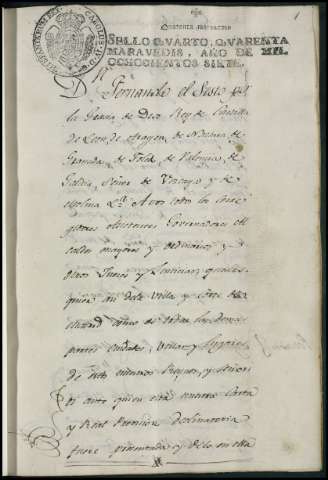 1
SELLO QVARTO, QVARENTA
MARAVEDIS, AÑO DE MIL
OCHOCIENTOS SIETE.
Dn. Fernando el Sesto por
la Gracia de Dios Rey de Castilla
de Leon de Aragon de Navarra de
Granada de Toledo de Valencia de
Galicia, Señor de Vizcaya y de
Molina &a. A vos todos los Corre
gidores Asistentes Governadores Al
caldes mayores y ordinarios y
otros Jueces y Justicias quales
quiera asi de la Villa y Corte de
Madrid como de todas las demas
partes Ciudades, Villas y Lugares
de estos nuestros Reynos, y Señorios
ante quien esta nuestra Carta
y Real Provision declaratoria
fuere presentada y de lo en ella